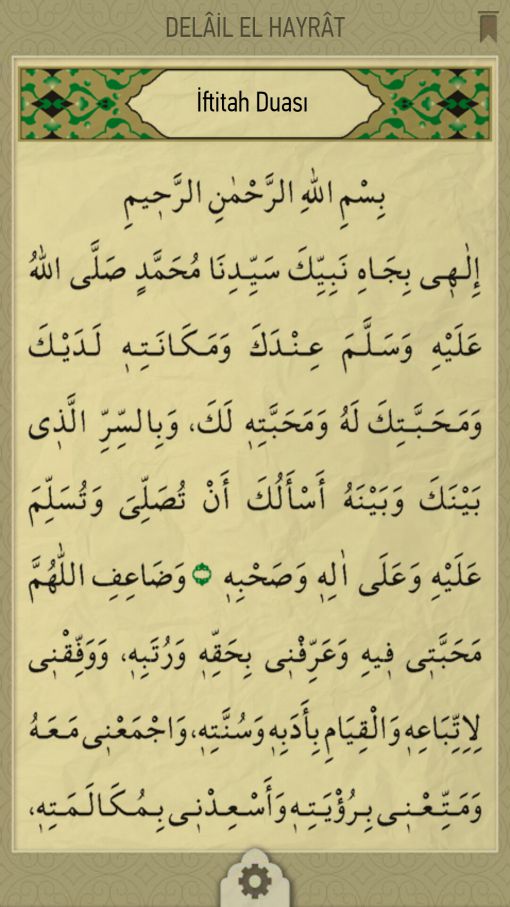 DELÂİL EL HAYRÂT
İftitah Duası
بِسْمِ اللهِ الرَّحْمٰنِ الرَّحٖيمِ
إِلٰهٖى بِجَاهِ نَبِيِّكَ سَيِّدِنَا مُحَمَّدٍ صَلَّى اللهُ
عَلَيْهِ وَسَلَّمَ عِنْدَكَ وَمَكَانَتِهٖ لَدَيْكَ
وَمَحَبَّتِكَ لَهُ وَمَحَبَّتِهٖ لَكَ، وَبِالسِّرِّ الَّذٖى
بَيْنَكَ وَبَيْنَهُ أَسْأَلُكَ أَنْ تُصَلِّىَ وَتُسَلِّمَ
عَلَيْهِ وَعَلَى اٰلِهٖ وَصَحْبِهٖ ۝ وَضَاعِفِ اللّٰهُمَّ
مَحَبَّتٖى فٖيهِ وَعَرِّفْنٖى بِحَقِّهٖ وَرُتَبِهٖ، وَوَفِّقْنٖى
لِاِتِّبَاعِهٖ وَالْقِيَامِ بِأَدَبِهٖ وَسُنَّتِهٖ، وَاجْمَعْنٖى مَعَهُ
وَمَتِّعْنٖى بِرُؤْيَتِهٖ وَأَسْعِدْنٖى بِمُكَالَمَتِهٖ،